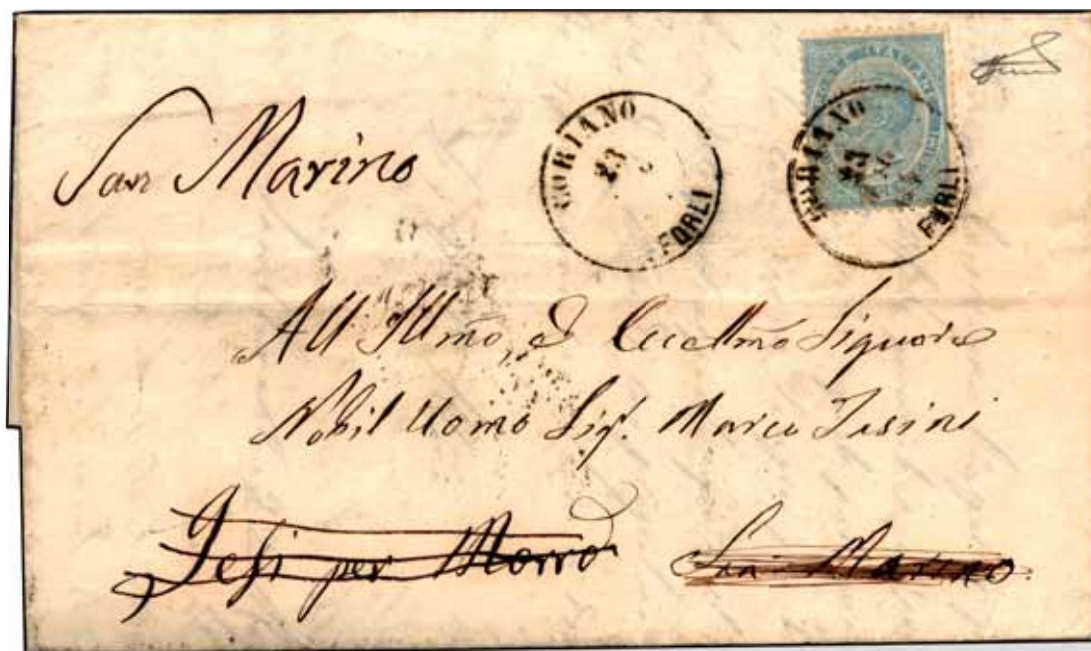 San Marino
CORIANO
23
FORLI
CORIANO
23
FORLI
All' Illmo ed Eccellmo Signore
Nobil Uomo Sig. Marco Tesini
Jesi per Morro San Marino